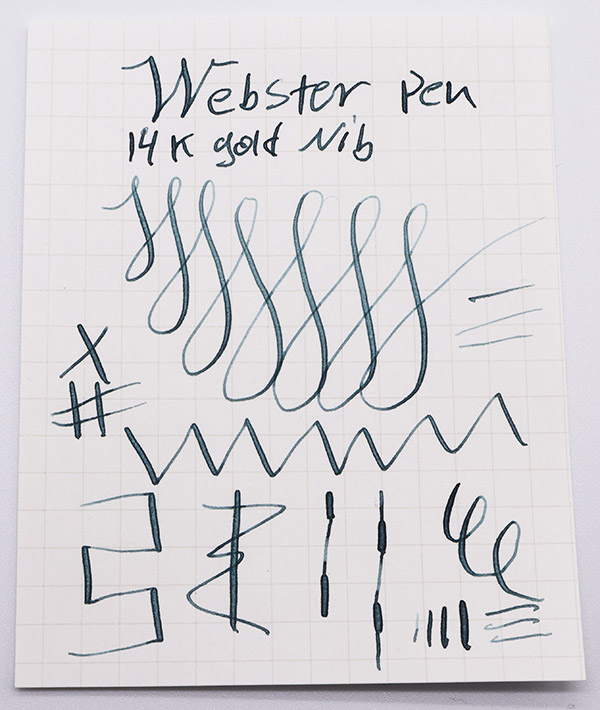 Webster Pen
14K gold Nib
X
#